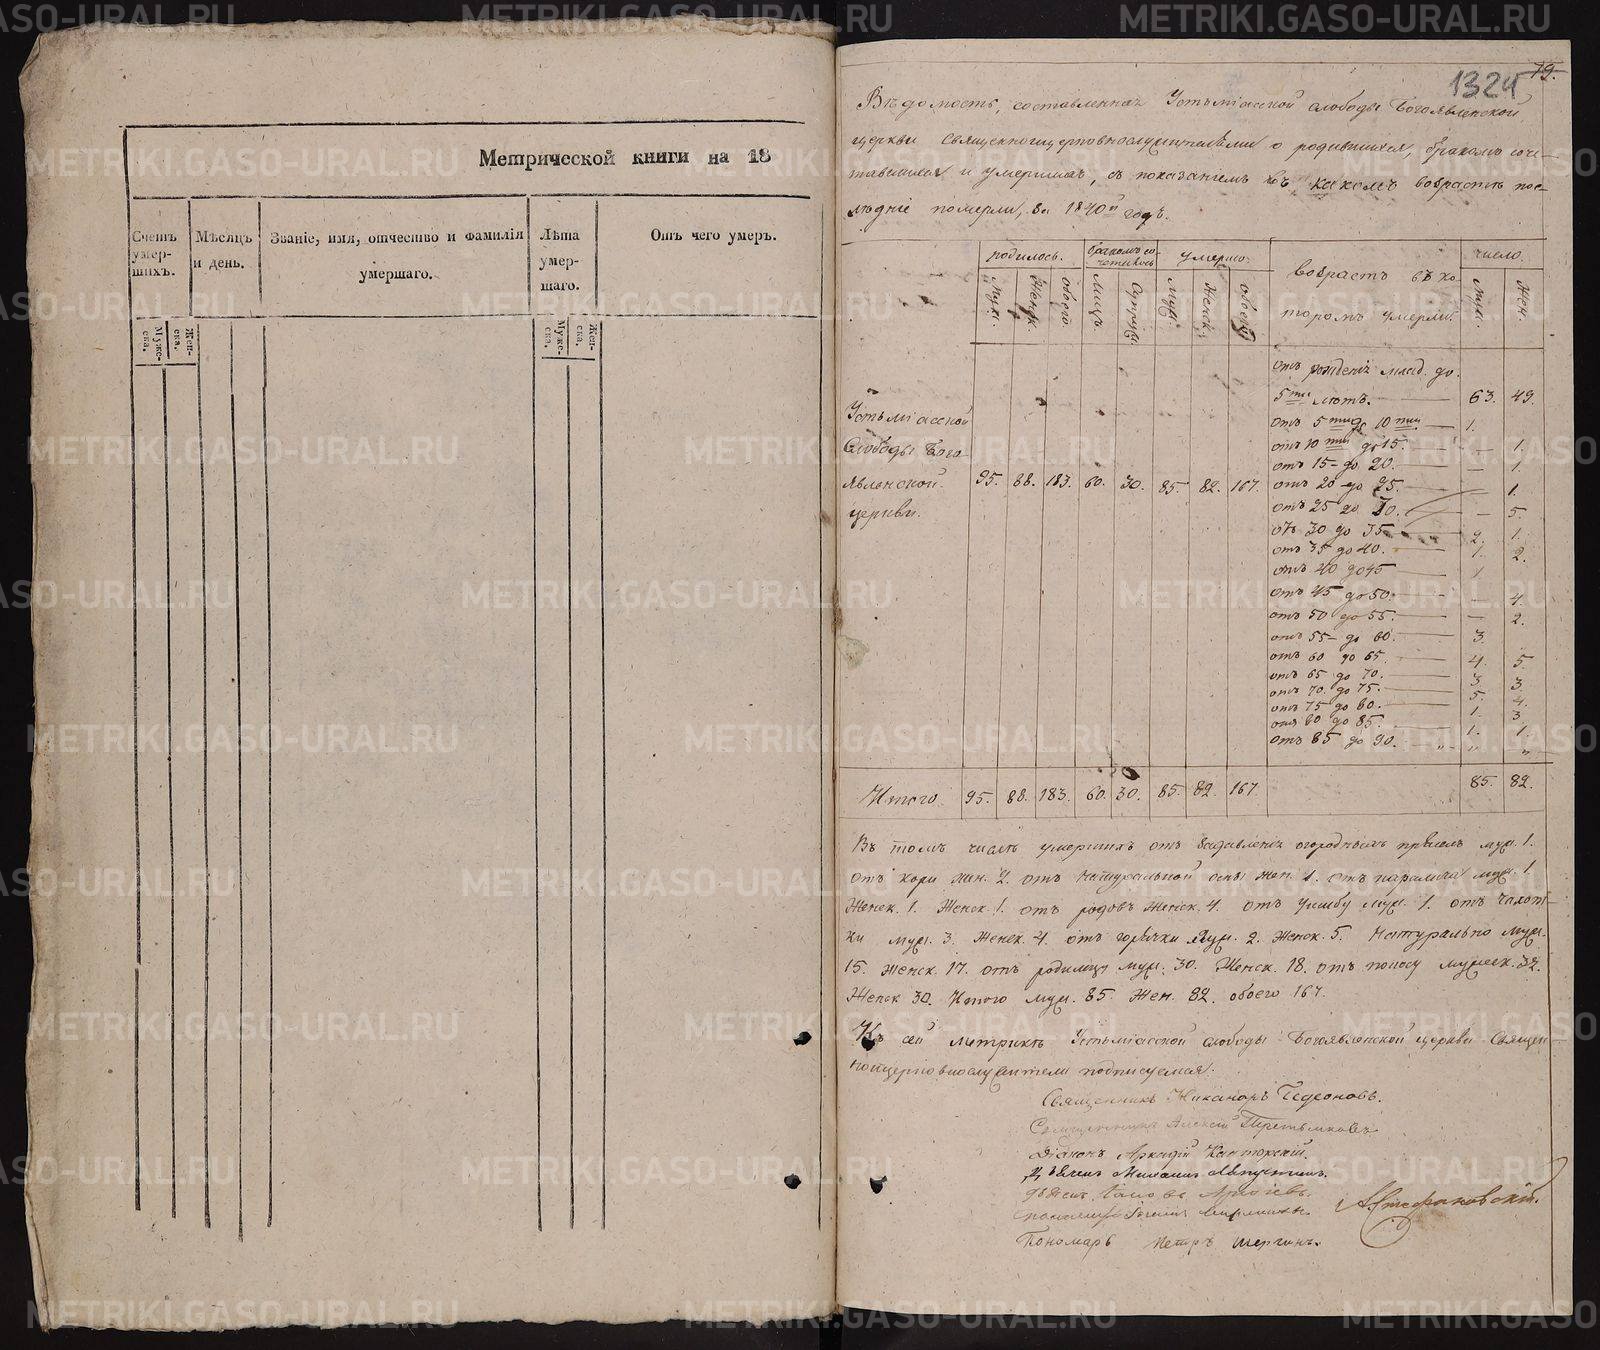 Метрической книги на 18
Счетъ умер-шихъ.
Мѣсяцъ и день.
Званіе, имя, отчество и фамилія умершаго.
Лѣта умер-шаго.
Отъ чего умеръ.
Муже-ска.
Жен-ска.
Муже-ска.
Жен-ска.
79.
1324
Вѣдомость, составленная Устьміасской слободы Богоявленской
церкви священноцерковнослужителями о родившихся, бракомъ соче-
тавшихся и умершихъ, съ показаніемъ въ какомъ возрастѣ пос-
лѣдніе померли, за 1840й годъ.
родилось.
бракомъ со-четалось
умерло.
возрастъ въ ко-
торомъ умерли.
число.
Муж.
Женск.
обоего.
Лицъ.
Супруж.
Муж.
Женск.
обоего
Муж.
Жен.
отъ рожденія млад. до
5ти лѣтъ. 63. 49.
отъ 5ти до 10ти 1.
отъ 10ти до 15. — 1.
отъ 15 до 20. — 1.
отъ 20 до 25. 1.
отъ 25 до 30. — 5.
отъ 30 до 35 2. 1.
отъ 35 до 40. 1. 2.
отъ 40 до 45
отъ 45 до 50. — 4.
отъ 50 до 55. — 2.
отъ 55 до 60. 3.
отъ 60 до 65. 4. 5.
отъ 65 до 70. 3. 3.
отъ 70 до 75. 5. 4.
отъ 75 до 80. 1. 3.
отъ 80 до 85. 1. 1.
отъ 85 до 90. " " "
Устьміасской
Слободы Бого-
явленской
церкви.
95. 88. 183. 60. 30. 85. 82. 167.
Итого 95. 88. 183. 60. 30. 85. 82. 167 85. 82.
Въ томъ числѣ умершихъ отъ задавленія огороднымъ пряслъ муж. 1.
отъ кори жен. 2. отъ натуральной оспы жен. 1. отъ паралича муж. 1
Женск. 1. Женск. 1. отъ родовъ Женск. 4. отъ ушибу муж. 1. отъ чахот-
ки муж. 3. Женск. 4. отъ горячки муж. 2. Женск. 5. Натурально муж.
15. Женск. 17. отъ родимцу муж. 30. Женск. 18. отъ поносу мужеск. 32.
Женск 30. Итого муж. 85. Жен. 82. обоего 167.
Къ сей метрикѣ Устьміасской слободы Богоявленской церкви Священ
ноцерковнослужители подписуемся.
Священникъ Никаноръ Гедеоновъ.
Священникъ Алексій Третьяковъ
Діаконъ Аркадій Канторскій.
Дьячекъ Михаилъ
Дьячекъ
Пономарь Петръ Шергинъ.
А. Стефановскій.
METRIKI.GASO-URAL.RU